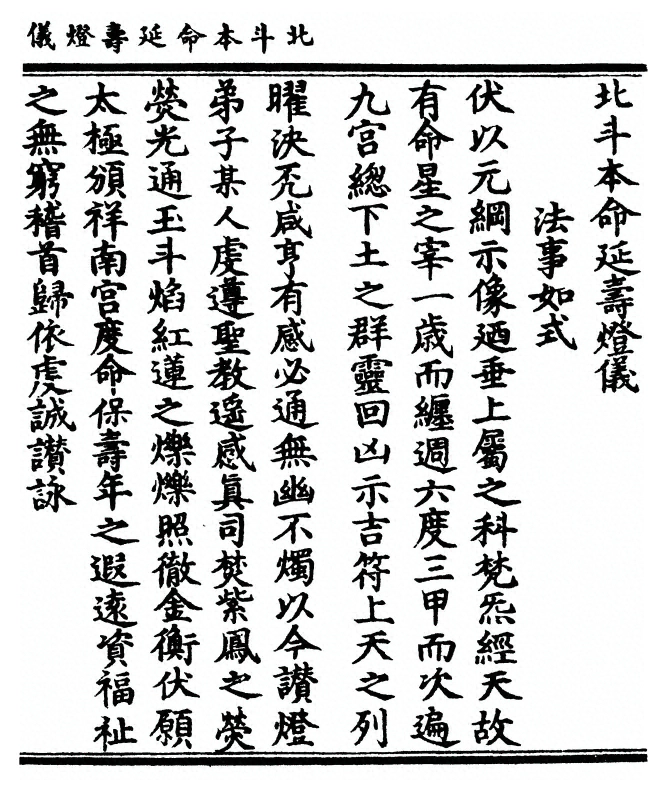 北斗本命延壽燈儀
北斗本命延壽燈儀
法事如式
伏以元綱示像廼垂上屬之科梵炁經天故
有命星之宰一歲而纏週六度三甲而次遍
九宮緫下土之群靈回凶示吉符上天之列
曜決咸亨有感必通無幽不燭以今讃燈
弟子某人虔遵聖教遙感眞司焚紫鳳之熒
熒光通玉斗焰紅蓮之爍爍照徹金衡伏願
太極頒祥南宮度命保壽年之遐遠資福祉
之無窮稽首歸依虔誠讃詠